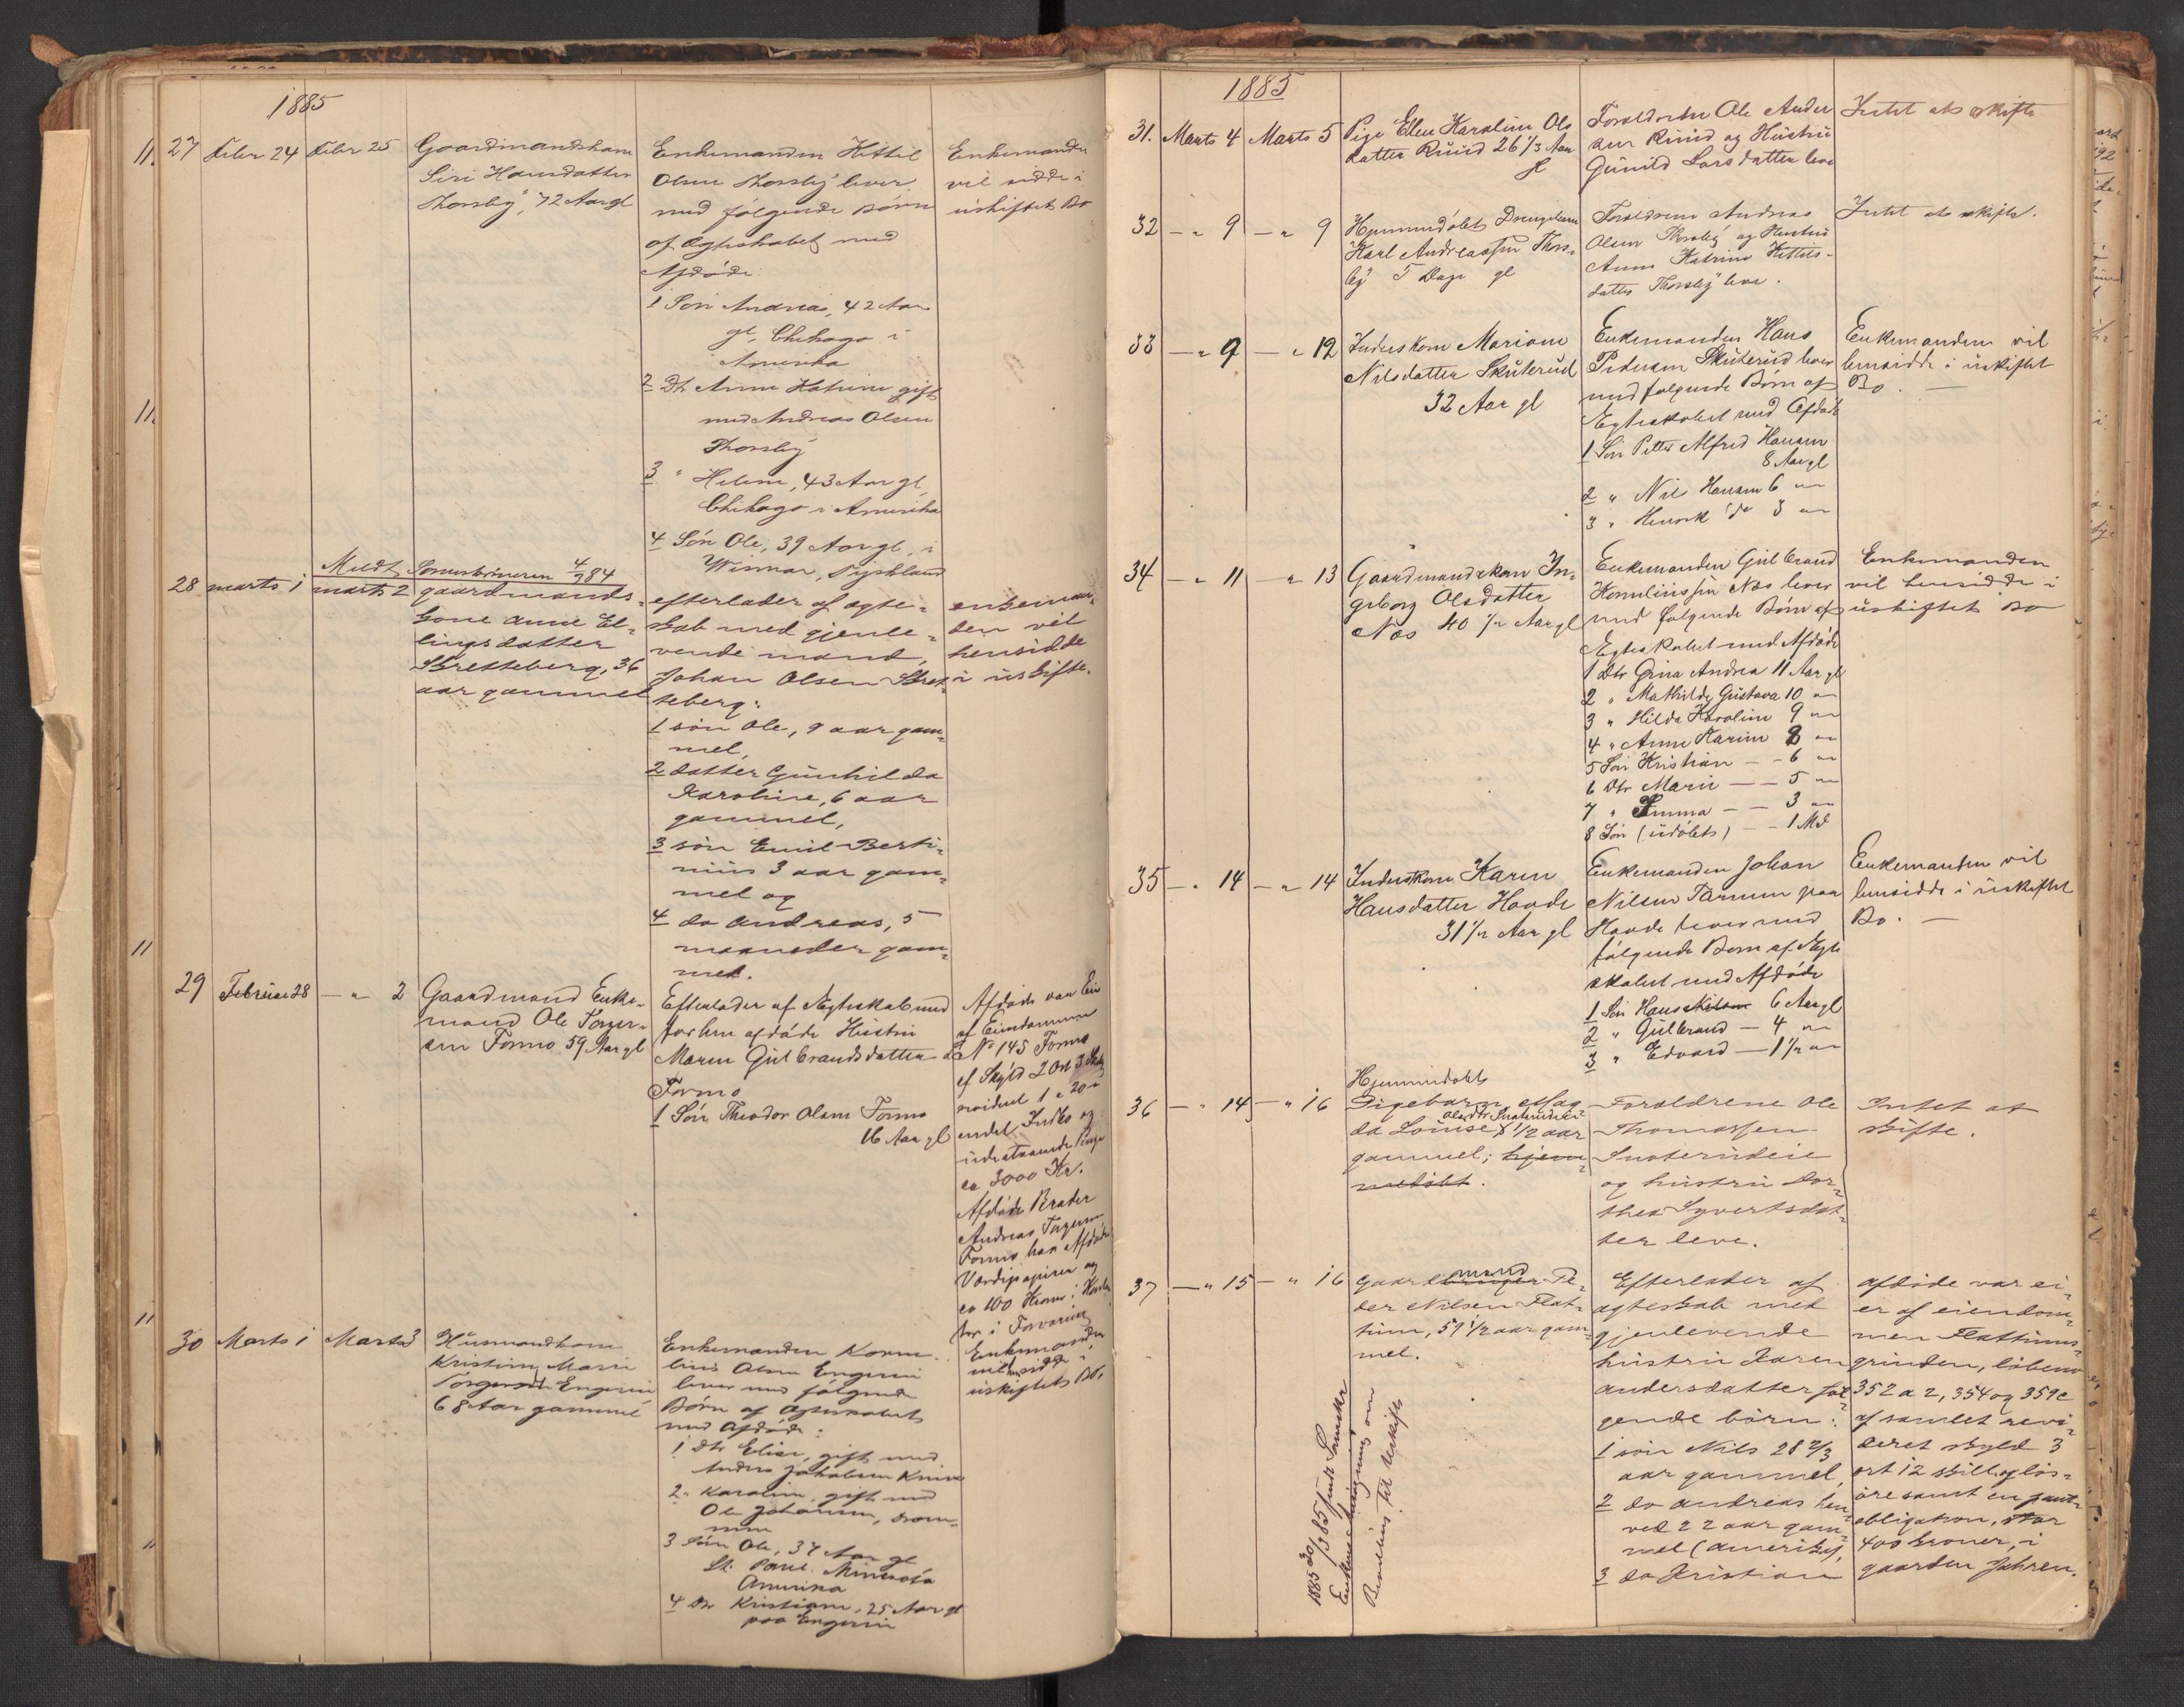 1885
11.
27 Febr 24 Febr 25
Gaardmandskone
Siri Hansdatter
Thorsby, 72 Aar gl
Enkemanden Kittil
Olsen Thorsby lever
med følgende Børn
af Ægteskabet med
Afdøde:
1 Søn Andreas, 42 Aar
gl, Chikago i
Amerika
2 Dtr Anne Katrine gift
med Andreas Olsen
Thorsby
3 " Helene, 43 Aar gl,
Chikago i Amerika
4 Søn Ole, 39 Aar gl, i
Wismar, Tyskland
Enkemanden
vil sidde i
uskiftet Bo
11.
28 marts 1 marts 2
Meldt 4/3 84
gaardmands-
kone Anne El-
lingsdatter
Stretteberg, 36
aar gammel
efterlader af ægte-
skab med gjenle-
vende mand,
Johan Olsen Stret-
teberg:
1 søn Ole, 9 aar gam-
mel,
2 datter Gunhilda
Karoline, 6 aar
gammel,
3 søn Emil Berti-
nius 3 aar gam-
mel og
4 do Andreas, 5
maaneder gam-
mel.
enkeman-
den vil
hensidde
i uskifte.
11
29 Februar 28 — " 2
Gaardmand Enke-
mand Ole Torger-
sen Formo 59 Aar gl
Efterlader af Ægteskab med
forhen afdøde Hustru
Maren Gulbrandsdatter
Formo
1 Søn Theodor Olsen Formo
16 Aar gl
Afdøde var Eier
af Eiendommen
No 145 Formo
af Skyld 2 Ort 3 Skil
revideret 1 " 20 "
endel Indbo og
udestaaende Penge
ca 3000 Kr.
Afdødes Broder
Andreas Torgersen
Formo har Afdødes
Værdipapirer og
ca 100 Kroner i
i Forvaring
11
30 Marts 1 Marts 3
Husmandskone
Kristine Marie
Torgersdtr Engerin
68 Aar gammel
Enkemanden Korne-
lius Olsen Engerin
lever med følgende
Børn af Ægteskabet
med Afdøde:
1 Dtr Elise, gift med
Anders Jakobsen
2 " Karoline, gift med
Ole Johansen,
3 Søn Ole, 37 Aar gl
St. Paul. Minesota
Amerika
4 Dtr Kristiane, 25 Aar gl
paa Engerin
Enkemanden
vil hensidde i
uskiftet Bo.
11
1885
31. Marts 4 Marts 5
Pige Ellen Karoline Ols
datter Ruud 26 1/3 Aar
gl
Forældrene Ole Ander
sen Ruud og Hustru
Gunild Larsdatter leve
Intet at skifte
32 — " 9 — " 9
Hjemmedøbt Drengebarn
Karl Andreassen Thors-
by 5 Dage gl
Forældrene Andreas
Olsen Thorsby og Hustru
Anne Katrine Kittils-
datter Thorsby leve.
Intet at skifte.
33 — " 9 — " 12
Inderstkone Mariane
Nilsdatter Skuterud
32 Aar gl
Enkemanden Hans
Pedersen Skuterud lever
med følgende Børn af
Ægteskabet med Afdøde
1 Søn Petter Alfred Hansen
8 Aar gl
2 " Nils Hansen 6 "
3 " Henrik do 3 "
Enkemanden vil
hensidde i uskiftet
Bo. —
34 — " 11 — " 13
Gaardmandskone In-
geborg Olsdatter
Næs 40 1/2 Aar gl
Enkemanden Gulbrand
Korneliussen Næs lever
med følgende Børn af
Ægteskabet med Afdøde
1 Dtr Grina Andrea 11 Aar gl
2 " Mathilde Gustava 10 "
3 " Hilda Karoline 9 "
4 " Anne Karine 8 "
5 Søn Kristian — — 6 "
6 Dtr Marie — — 5 "
7 " Emma — — 3 "
8 Søn (udøbt) — — 1 Md
Enkemanden
vil hensidde i
uskiftet Bo
35 — " 14 — " 14
Inderstkone Karen
Hansdatter Hovde
31 1/2 Aar gl
Enkemanden Johan
Nilsen paa
Hovde lever med
følgende Børn af Ægte
skabet med Afdøde
1 Søn Hans 6 Aar gl
2 " Gulbrand — 4 "
3 " Edvard — 1 1/2 "
Enkemanden vil
hensidde i uskiftet
Bo. —
36 — " 14 — " 16
Hjemmedøbt
Pigebarn Mag-
da Louise 1/2 aar
gammel; hjem-
medøbt.
Forældrene Ole
Thomassen
Snoterudeie
og hustru Dor-
thea Syvertsdat-
ter leve.
Intet at
skifte.
37 — " 15 — " 16
Gaardmand Pe-
der Nilsen Flat-
tum, 59 1/2 aar gam-
mel.
1885 30/3 85
Enkens om
Bevilling til Uskifte
Efterlader af
ægteskab med
gjenlevende
hustru Karen
Andersdatter føl-
gende børn:
1 søn Nils 28 2/3
aar gammel,
2 do Andreas hen-
ved 22 aar gam-
mel (Amerika),
3 do Kristian
afdøde var ei-
er af eiendom-
men Flattums-
grinden, løbeno
352 a 2, 354 og 359c
af samlet revi-
deret skyld 3
ort 12 skill og løs-
øre samt en pant-
obligation, stor
400 kroner, i
gaarden Jahren.